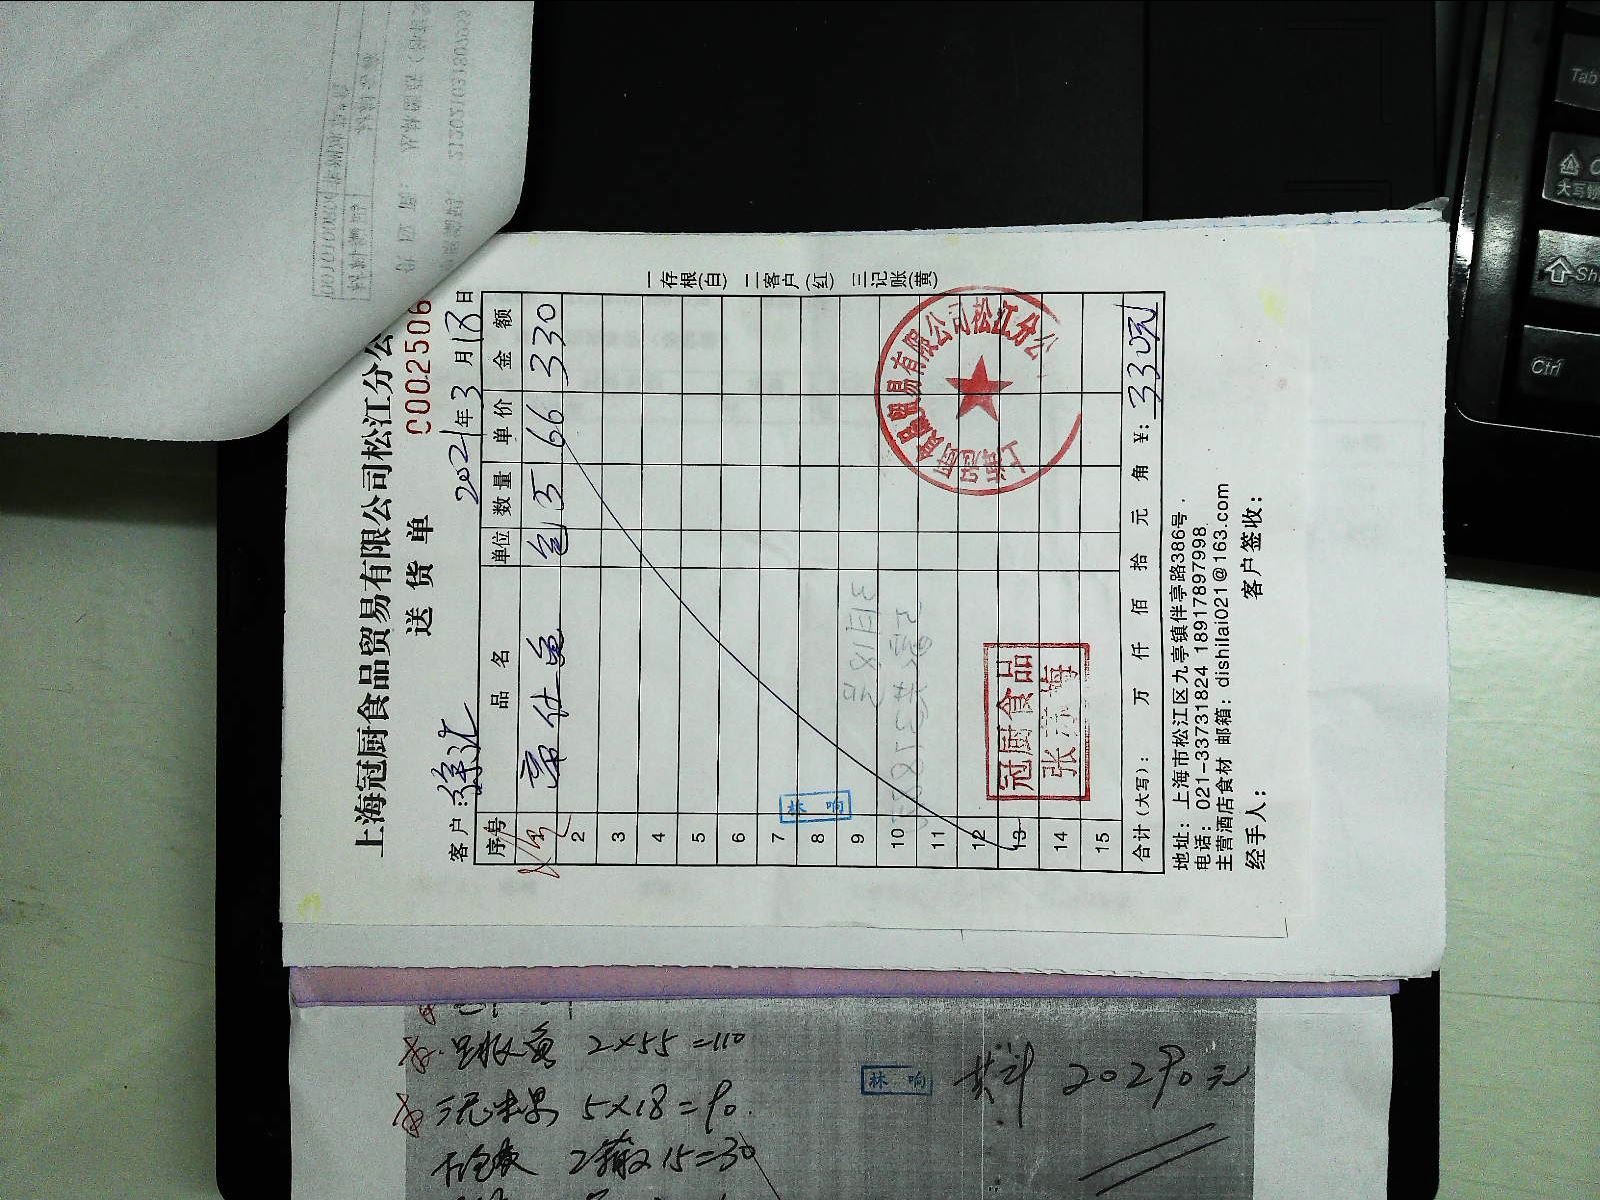 上海冠厨食品贸易有限公司松江分公
送货单
0002506
客户:徐汇
2021年3月18日
序号 品名 单位 数量 单价 金额
包 5 66 330
2
3
4
5
6
7
8
9
10
11
12
13
14
15
合计(大写): 万 仟 佰 拾 元 角 ¥:330元
地址:上海市松江区九亭镇伴亭路386号.
电话:021-33731824 18917897998
主营酒店食材 邮箱:dishilai021@163.com
经手人: 客户签收:
一存根(白) 二客户(红) 三记账(黄)
上海冠厨食品贸易有限公司松江分公
冠厨食品
林响
3月18号
2×55=110
5×18=90.
15=30
林响
共计 20290元
Tab
大写锁
Shi
Ctrl